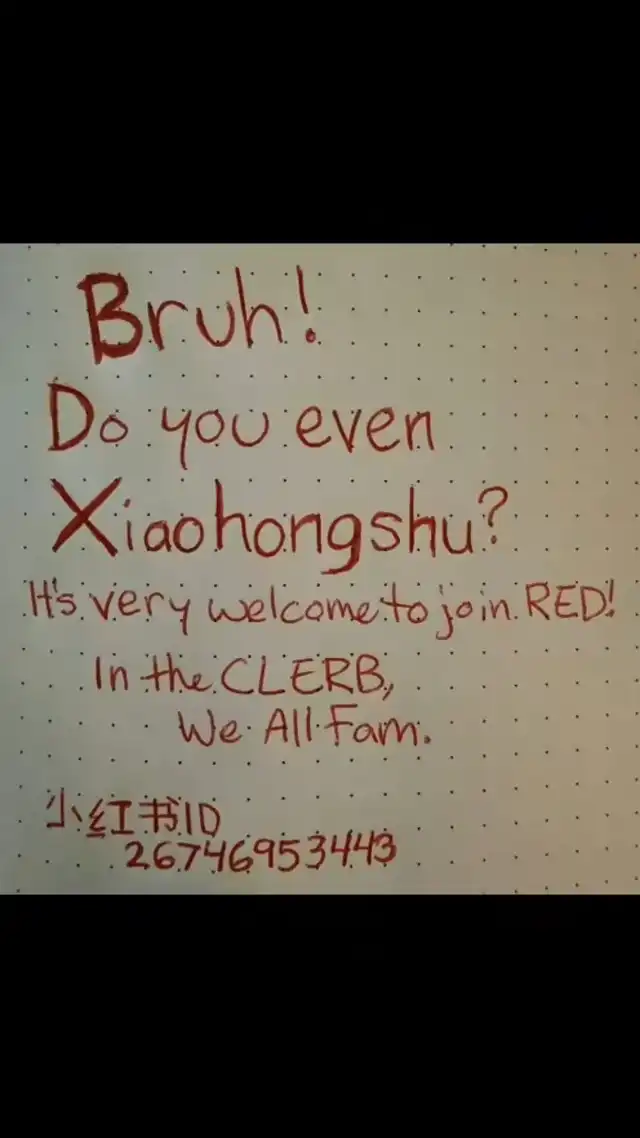 Bruh!
Do you even
Xiaohongshu?
It's very welcome to join RED!
In the CLERB,
We All Fam.
小红书ID
26746953443